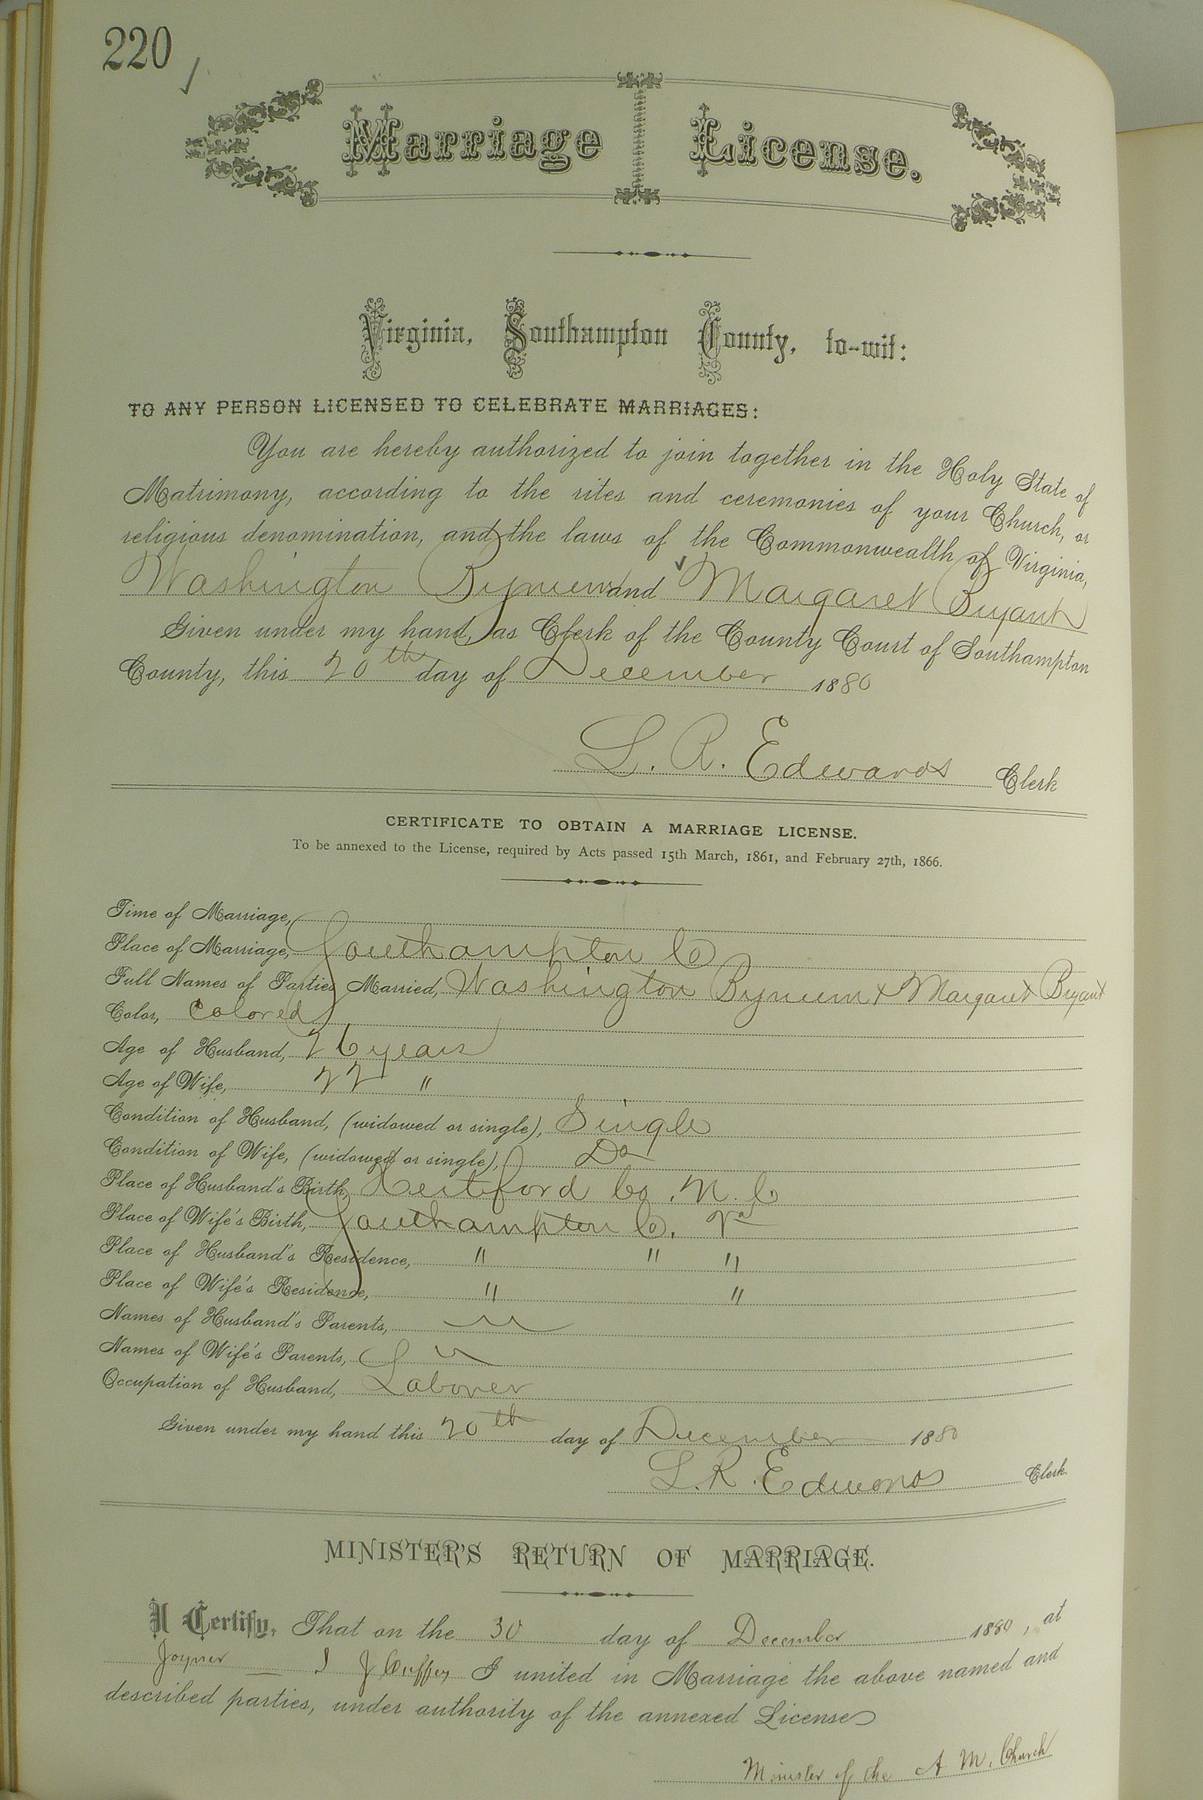 220
Marriage License.
Virginia, Southampton County, to-wit:
TO ANY PERSON LICENSED TO CELEBRATE MARRIAGES:
You are hereby authorized to join together in the Holy State of
Matrimony, according to the rites and ceremonies of your Church, or
religious denomination, and the laws of the Commonwealth of Virginia,
Washington Bynum and Margaret Bryant
Given under my hand, as Clerk of the County Court of Southampton
County, this 20th day of December 1880
L. R. Edwards Clerk
CERTIFICATE TO OBTAIN A MARRIAGE LICENSE.
To be annexed to the License, required by Acts passed 15th March, 1861, and February 27th, 1866.
Time of Marriage,
Place of Marriage, Southampton Co
Full Names of Parties Married, Washington Bynum & Margaret Bryant
Color, Colored
Age of Husband, 26 years
Age of Wife, 22 "
Condition of Husband, (widowed or single), Single
Condition of Wife, (widowed or single), Do
Place of Husband's Birth, Hertford Co. N. C
Place of Wife's Birth, Southampton C. Va
Place of Husband's Residence, " " "
Place of Wife's Residence, " "
Names of Husband's Parents,
Names of Wife's Parents,
Occupation of Husband, Laborer
Given under my hand this 20th day of December 1880
L. R. Edwards Clerk.
MINISTER'S RETURN OF MARRIAGE.
I Certify, That on the 30 day of December 1880, at
Joyner I J I united in Marriage the above named and
described parties, under authority of the annexed License
Minister of the A M. Church